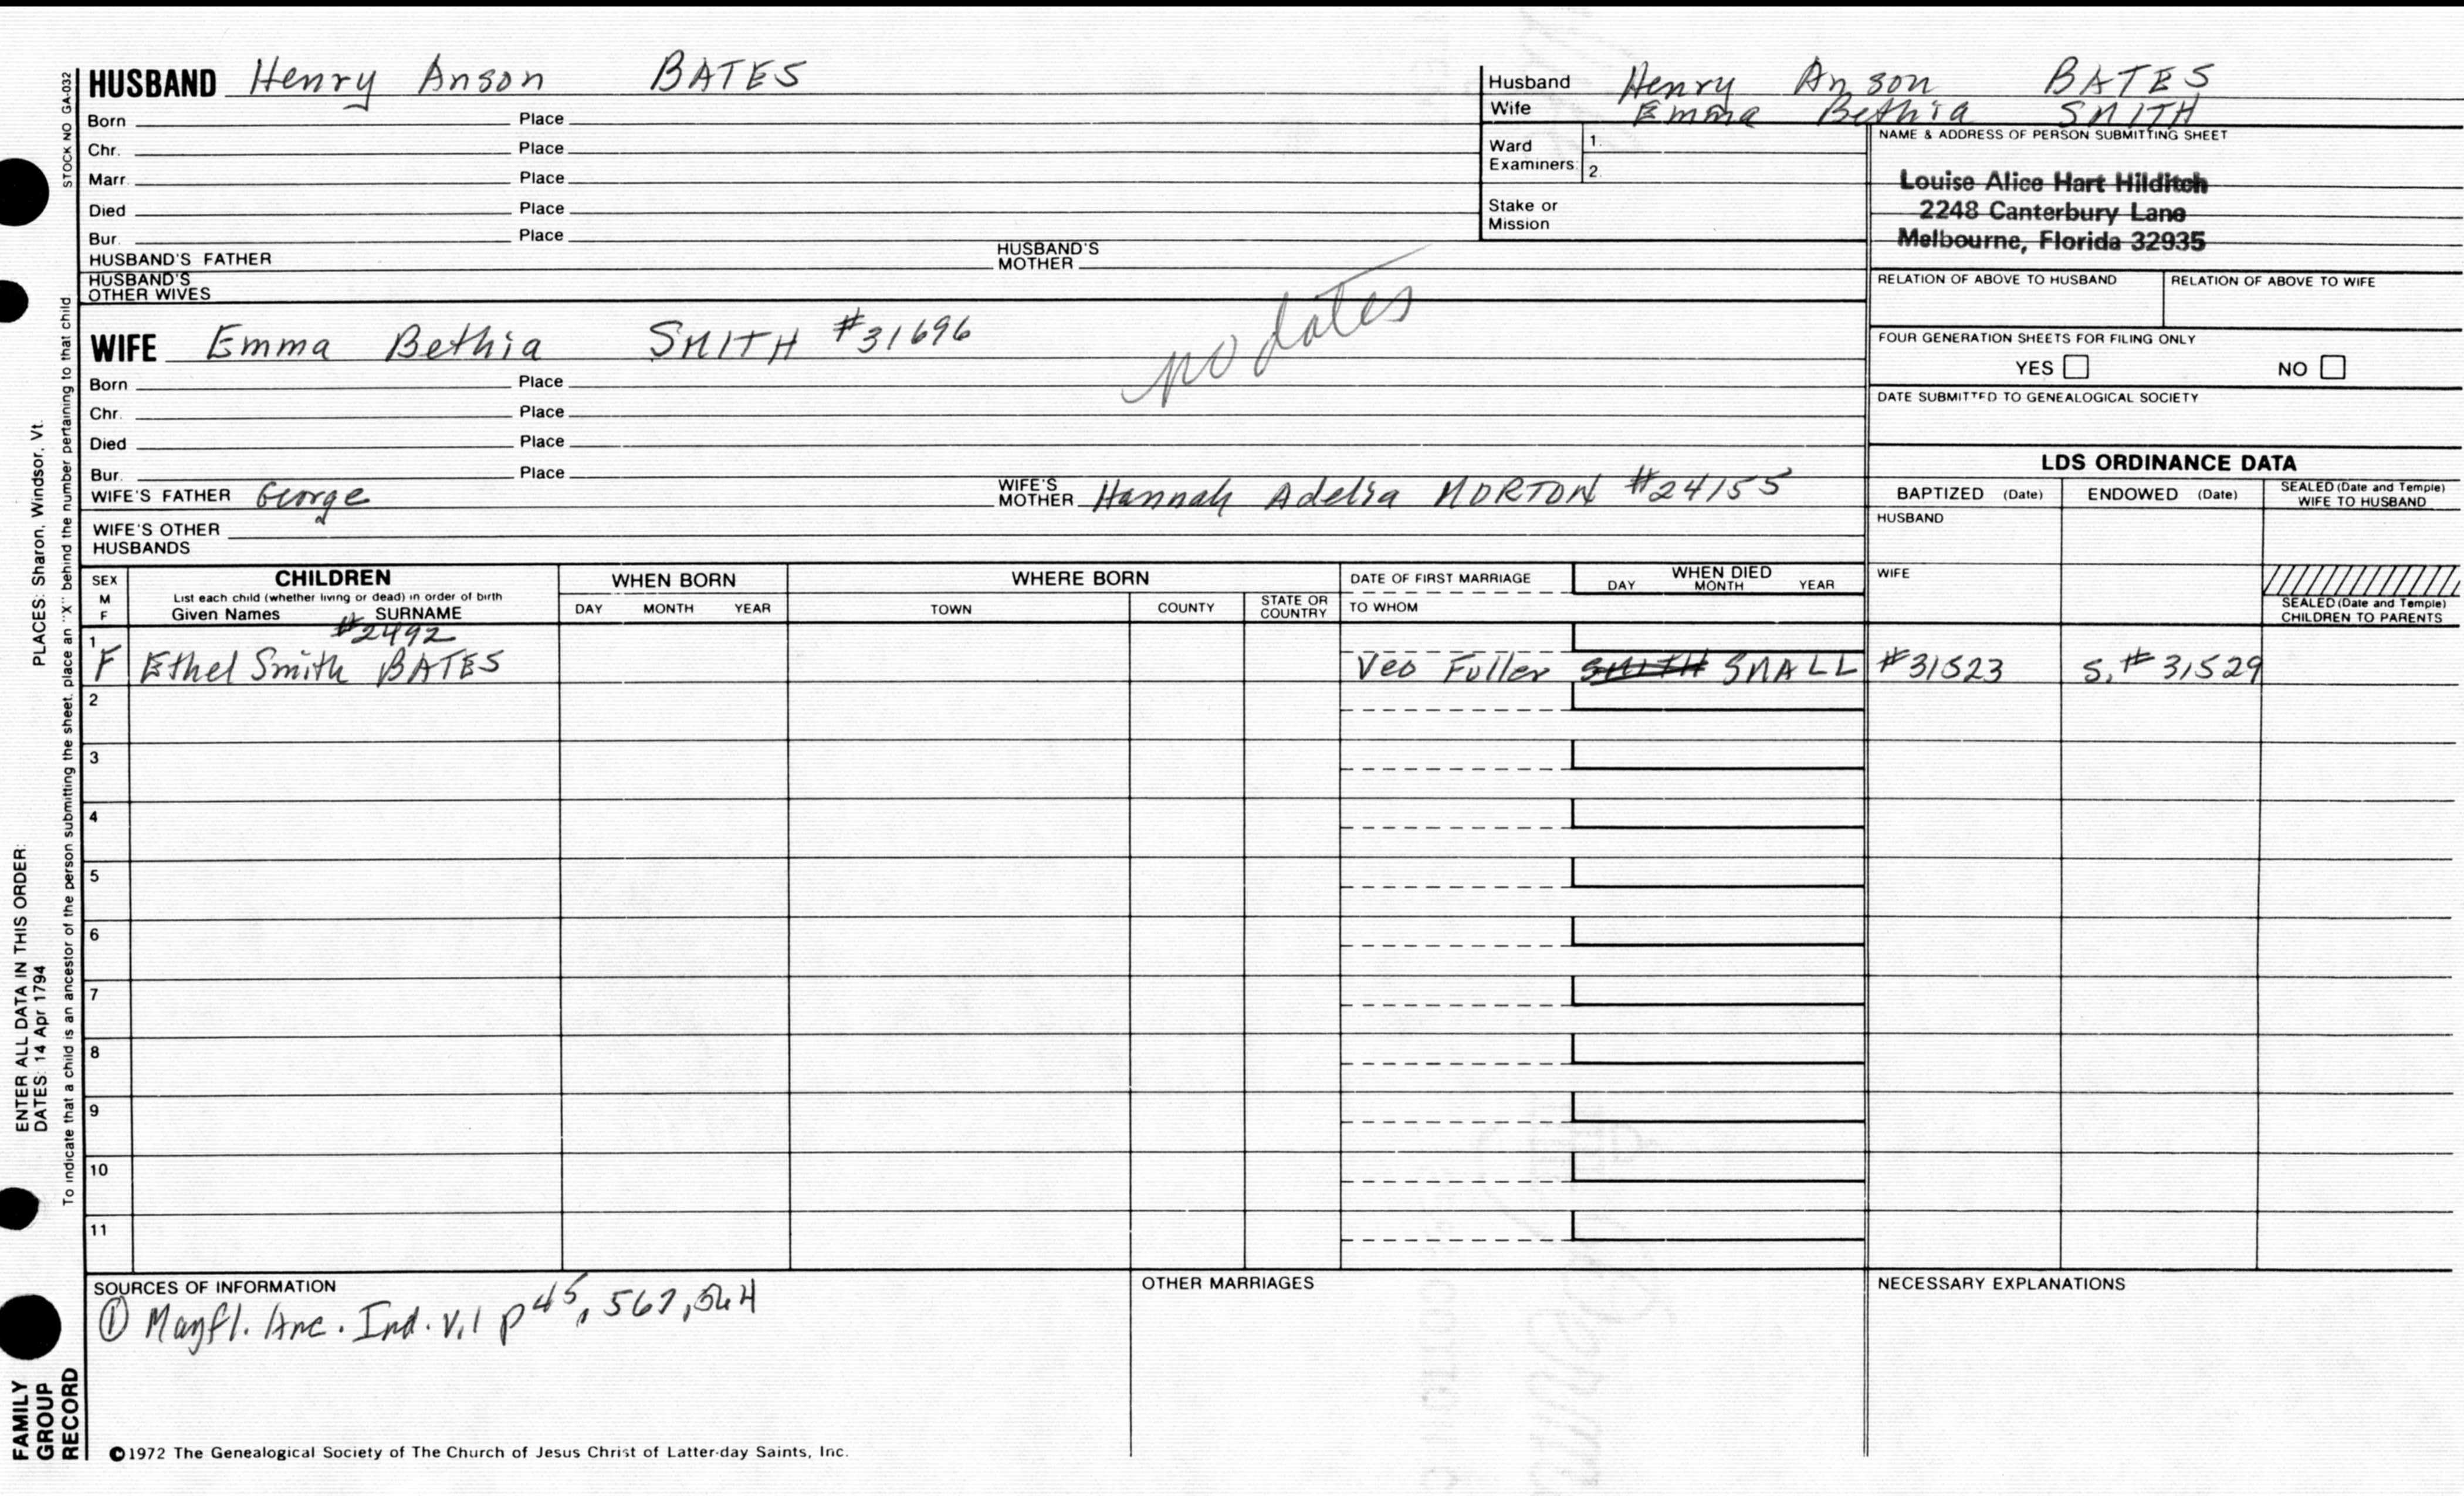 HUSBAND Henry Anson BATES
Born Place
Chr. Place
Marr. Place
Died Place
Bur. Place
HUSBAND'S FATHER HUSBAND'S MOTHER
HUSBAND'S OTHER WIVES
WIFE Emma Bethia SMITH #31696
no dates
Born Place
Chr. Place
Died Place
Bur. Place
WIFE'S FATHER George WIFE'S MOTHER Hannah Adelia MORTON #24155
WIFE'S OTHER HUSBANDS
Husband Henry Anson BATES
Wife Emma Bethia SMITH
Ward Examiners 1. 2.
Stake or Mission
NAME & ADDRESS OF PERSON SUBMITTING SHEET
Louise Alice Hart Hilditch
2248 Canterbury Lane
Melbourne, Florida 32935
RELATION OF ABOVE TO HUSBAND RELATION OF ABOVE TO WIFE
FOUR GENERATION SHEETS FOR FILING ONLY
YES NO
DATE SUBMITTED TO GENEALOGICAL SOCIETY
LDS ORDINANCE DATA
BAPTIZED (Date) ENDOWED (Date) SEALED (Date and Temple) WIFE TO HUSBAND
HUSBAND
WIFE
SEALED (Date and Temple) CHILDREN TO PARENTS
SEX M F
CHILDREN
List each child (whether living or dead) in order of birth
Given Names SURNAME
WHEN BORN
DAY MONTH YEAR
WHERE BORN
TOWN COUNTY STATE OR COUNTRY
DATE OF FIRST MARRIAGE
TO WHOM
WHEN DIED
DAY MONTH YEAR
#2492
1 F Ethel Smith BATES Veo Fuller SMITH SMALL #31523 S. #31529
2
3
4
5
6
7
8
9
10
11
SOURCES OF INFORMATION
① Mayfl. Anc. Ind. v.1 p 45, 567, 564
OTHER MARRIAGES
NECESSARY EXPLANATIONS
©1972 The Genealogical Society of The Church of Jesus Christ of Latter-day Saints, Inc.
STOCK NO GA-032
To indicate that a child is an ancestor of the person submitting the sheet, place an "X" behind the number pertaining to that child
PLACES: Sharon, Windsor, Vt.
ENTER ALL DATA IN THIS ORDER:
DATES: 14 Apr 1794
FAMILY
GROUP
RECORD